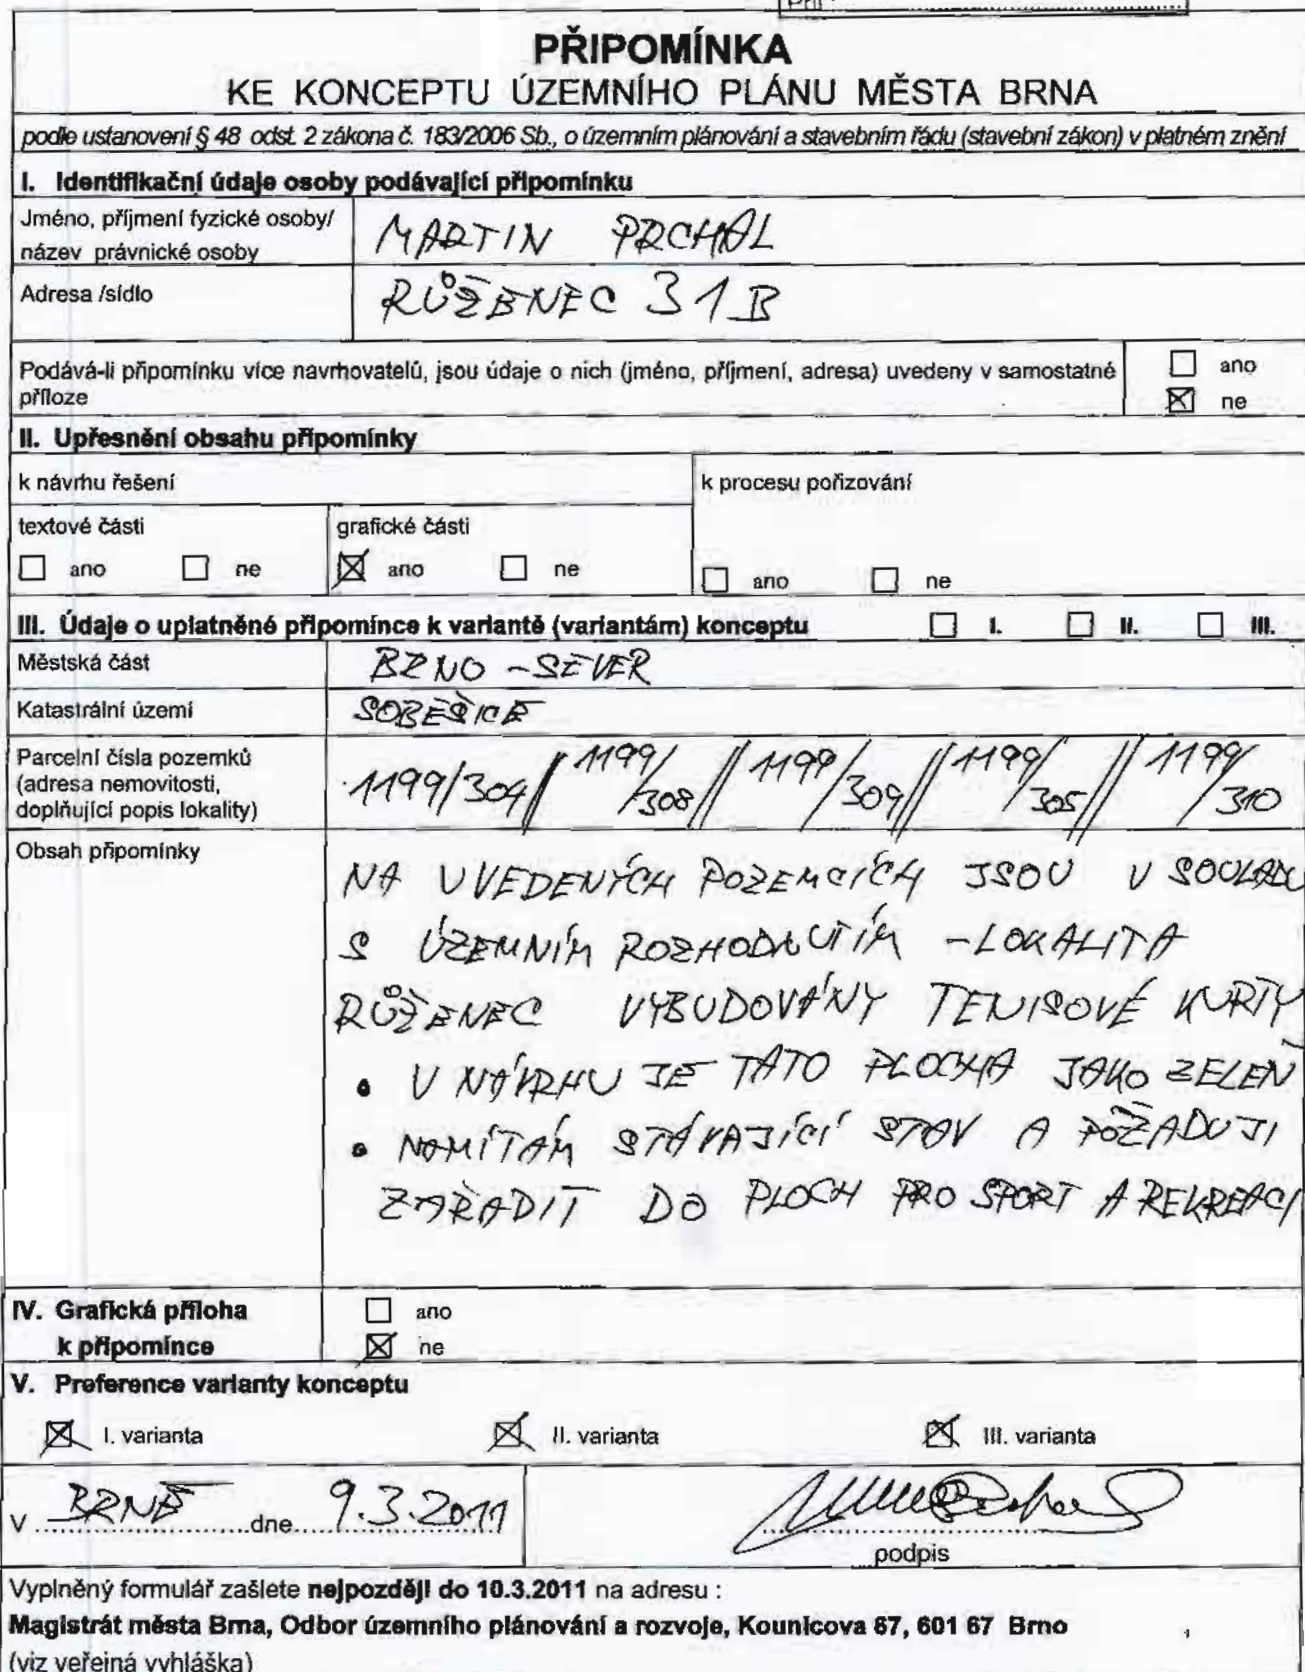 PŘIPOMÍNKA
KE KONCEPTU ÚZEMNÍHO PLÁNU MĚSTA BRNA
podle ustanovení § 48 odst. 2 zákona č. 183/2006 Sb., o územním plánování a stavebním řádu (stavební zákon) v platném znění
I. Identifikační údaje osoby podávající připomínku
Jméno, příjmení fyzické osoby/
název právnické osoby
MARTIN PRCHAL
Adresa /sídlo
RŮŽENEC 31B
Podává-li připomínku více navrhovatelů, jsou údaje o nich (jméno, příjmení, adresa) uvedeny v samostatné
příloze
ano
ne
II. Upřesnění obsahu připomínky
k návrhu řešení
k procesu pořizování
textové části
grafické části
ano ne ano ne
ano ne
III. Údaje o uplatněné připomínce k variantě (variantám) konceptu I. II. III.
Městská část
BRNO - SEVER
Katastrální území
SOBĚŠICE
Parcelní čísla pozemků
(adresa nemovitosti,
doplňující popis lokality)
1199/304 // 1199/308 // 1199/309 // 1199/305 // 1199/310
Obsah připomínky
NA UVEDENÝCH POZEMCÍCH JSOU V SOULADU
S ÚZEMNÍM ROZHODNUTÍM - LOKALITA
RŮŽENEC VYBUDOVÁNY TENISOVÉ KURTY
• V NÁVRHU JE TATO PLOCHA JAKO ZELEŇ
• NAMÍTÁM STÁVAJÍCÍ STAV A POŽADUJI
ZAŘADIT DO PLOCH PRO SPORT A REKREACI
IV. Grafická příloha
k připomínce
ano
ne
V. Preference varianty konceptu
I. varianta II. varianta III. varianta
V BRNĚ dne 9.3.2011
podpis
Vyplněný formulář zašlete nejpozději do 10.3.2011 na adresu :
Magistrát města Brna, Odbor územního plánování a rozvoje, Kounicova 67, 601 67 Brno
(viz veřejná vyhláška)